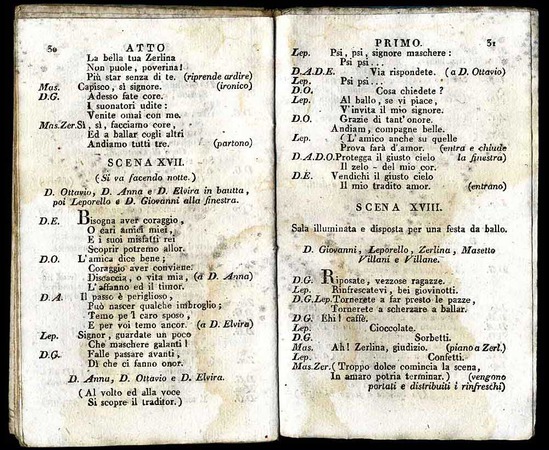 50 ATTO
La bella tua Zerlina
Non puole, poverina!
Più star senza di te. (riprende ardire)
Mas. Capisco, sì signore. (ironico)
D.G. Adesso fate core.
I suonatori udite:
Venite omai con me.
Mas.Zer. Sì, sì, facciamo core,
Ed a ballar cogli altri
Andiamo tutti tre. (partono)
SCENA XVII.
(Si va facendo notte.)
D. Ottavio, D. Anna e D. Elvira in bautta,
poi Leporello e D. Giovanni alla finestra.
D.E. Bisogna aver coraggio,
O cari amici miei,
E i suoi misfatti rei
Scoprir potremo allor.
D.O. L'amica dice bene;
Coraggio aver conviene.
Discaccia, o vita mia, (a D. Anna)
L'affanno ed il timor.
D.A. Il passo è periglioso,
Può nascer qualche imbroglio;
Temo pe'l caro sposo,
E per voi temo ancor. (a D. Elvira)
Lep. Signor, guardate un poco
Che maschere galanti!
D.G. Falle passare avanti,
Dì che ci fanno onor.
D. Anna, D. Ottavio e D. Elvira.
(Al volto ed alla voce
Si scopre il traditor.)
PRIMO. 51
Lep. Psi, psi, signore maschere:
Psi psi...
D.A.D.E. Via rispondete. (a D. Ottavio)
Lep. Psi psi...
D.O. Cosa chiedete?
Lep. Al ballo, se vi piace,
V'invita il mio signore.
D.O. Grazie di tant'onore.
Andiam, compagne belle.
Lep. (L'amico anche su quelle
Prova farà d'amor. (entra e chiude
D.A.D.O. Protegga il giusto cielo la finestra)
Il zelo - del mio cor.
D.E. Vendichi il giusto cielo
Il mio tradito amor. (entrano)
SCENA XVIII.
Sala illuminata e disposta per una festa da ballo.
D. Giovanni, Leporello, Zerlina, Masetto
Villani e Villane.
D.G. Riposate, vezzose ragazze.
Lep. Rinfrescatevi, bei giovinotti.
D.G.Lep. Tornerete a far presto le pazze,
Tornerete a scherzare a ballar.
D.G. Ehi! caffè.
Lep. Cioccolate.
D.G. Sorbetti.
Mas. Ah! Zerlina, giudizio. (piano a Zerl.)
Lep. Confetti.
Mas.Zer. (Troppo dolce comincia la scena,
In amaro potria terminar.) (vengono
portati e distribuiti i rinfreschi)